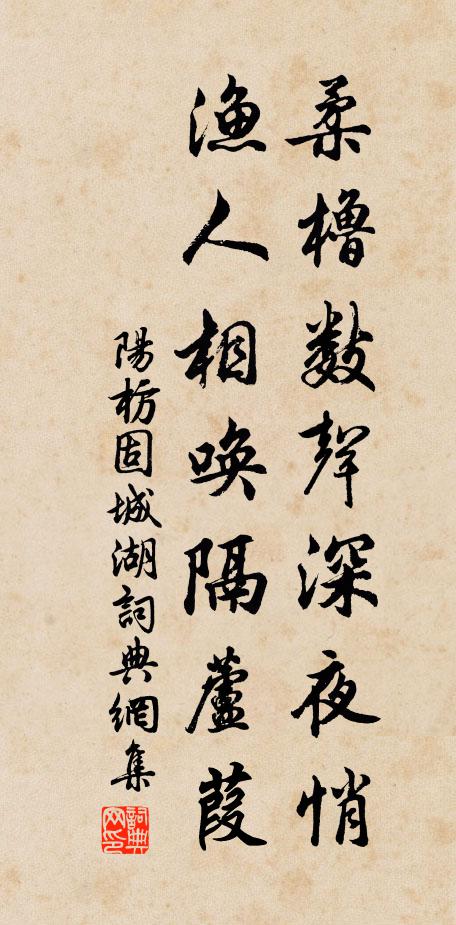 柔櫓數聲深夜悄
漁人相喚隔蘆葭
陽枋固城湖詞典網集
詞典网印